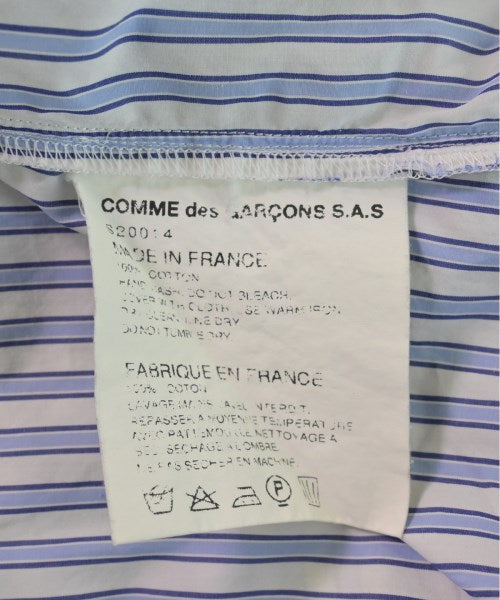 COMME des GARÇONS S.A.S
S20014
MADE IN FRANCE
100% COTTON
HAND WASH DO NOT BLEACH.
COVER WITH CLOTH USE WARM IRON
DRY CLEAN LINE DRY
DO NOT TUMBLE DRY
FABRIQUE EN FRANCE
100% COTON
LAVAGE MAIN JAVEL INTERDIT.
REPASSER A MOYENNE TEMPERATURE
AVEC PATTEMOUILLE NETTOYAGE A
SEC SECHAGE A L'OMBRE
NE PAS SECHER EN MACHINE
P